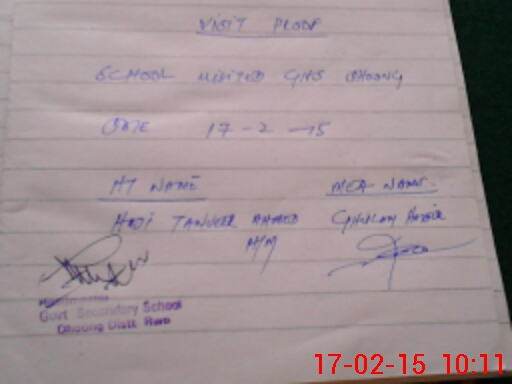 VISIT PROOF
SCHOOL VISITED GHS DHOONG
DATE 17-2-15
HT NAME MEA NAME
HADI TANVEER AHMED GHULAM
H/M
Headmaster
Govt Secondary School
Dhoong Distt
17-02-15 10:11